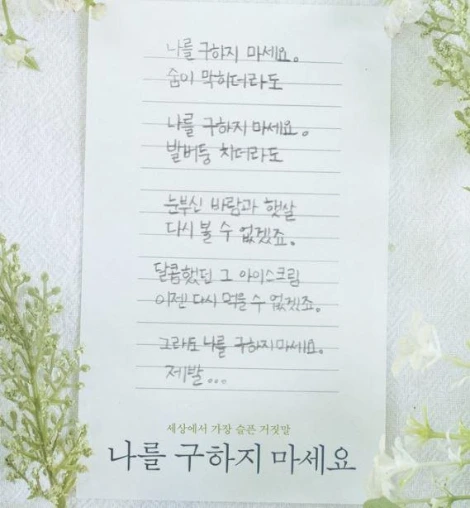 나를 구하지 마세요.
숨이 막히더라도
나를 구하지 마세요.
발버둥 치더라도
눈부신 바람과 햇살
다시 볼 수 없겠죠.
달콤했던 그 아이스크림
이젠 다시 먹을 수 없겠죠.
그래도 나를 구하지 마세요.
제발...
세상에서 가장 슬픈 거짓말
나를 구하지 마세요